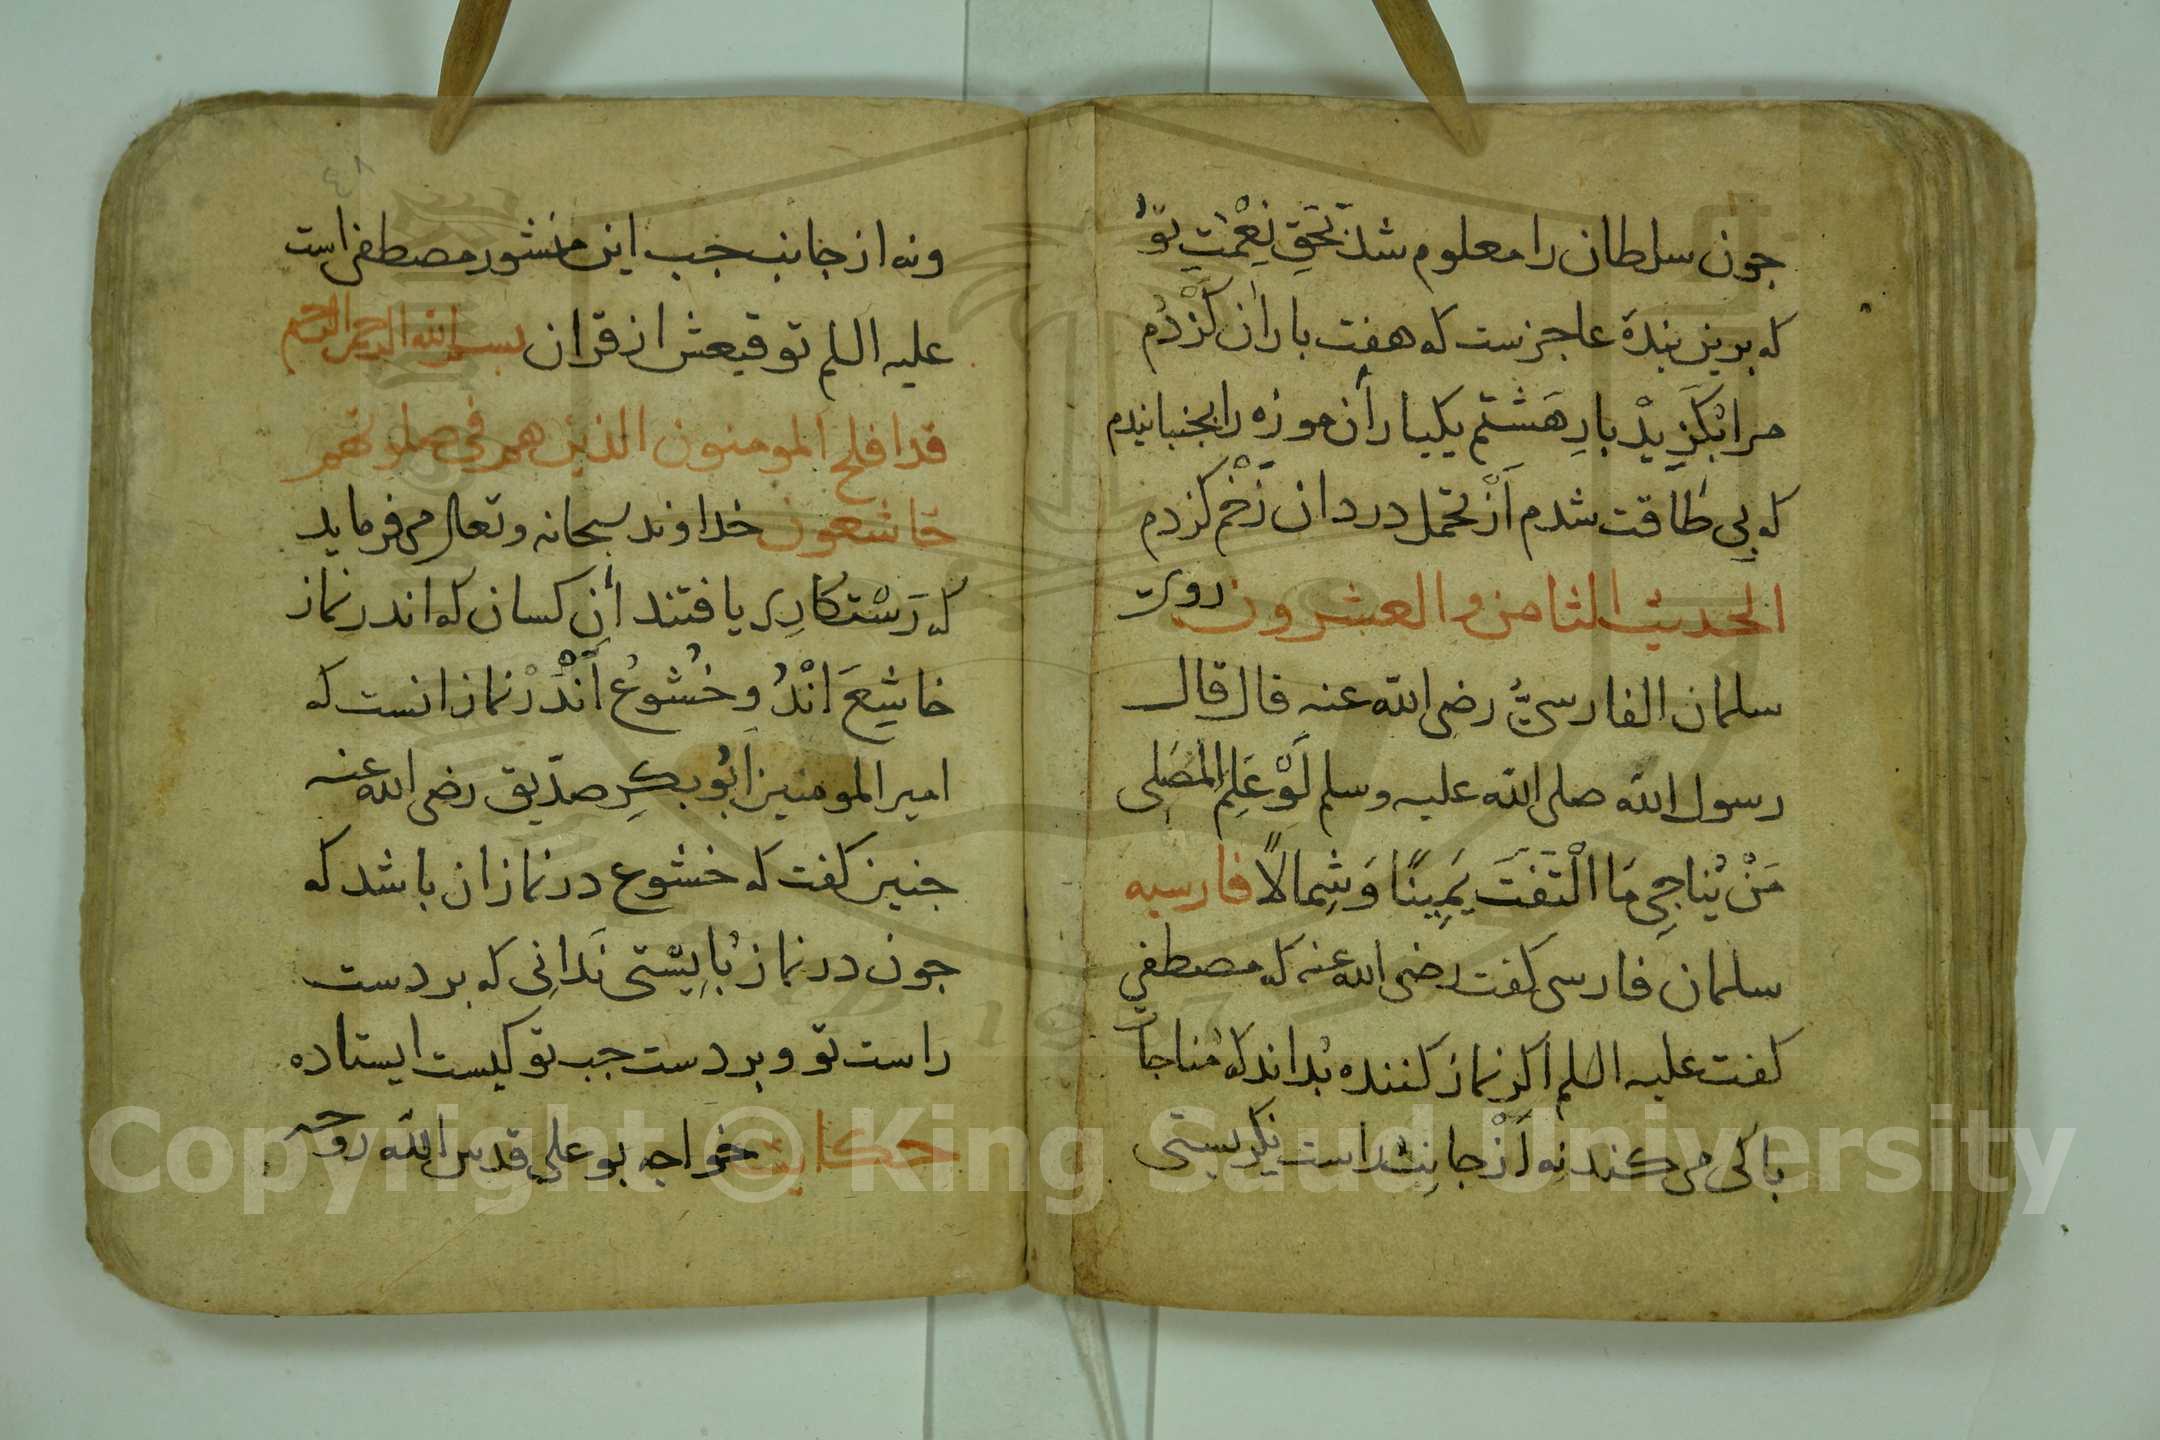 جون سلطان را معلوم شد بَحَقِ نِعْمَتِ تو
که برین بندهٔ عاجزست که هفت بار ان کَژْدُم
مرا بگزیدْ بارِ هَشتم یکبار أن موزه را بجنبانیدم
که بی طاقت شدم اَزْ تحمل درد ان زَخْم کژدم
الحدیث الثامن والعشرون روی
سلمان الفارسیُّ رضی الله عنه قال قال
رسول الله صلی الله علیه وسلم لَوْ عَلِمَ المُصَلی
مَنْ یُناجِی مَا الْتَفَتَ یَمِینًا وَشِمالًا فارسیه
سلمان فارسی کفت رضی الله عنه که مصطفی
کفت علیه السلم اکر نماز کننده بُداند که مُناجات
با کی می کند نه اَزْ جانِبِ راست نِکِریستی
ونه از جانب جب این منشور مصطفی است
علیه السلم توقیعش از قران بسم الله الرحمن الرحیم
قد افلح المومنون الذین هم فی صلوتهم
خاشعون خداوند سبحانه وتعالی می فرماید
که رَسْتکاری یافتند أن کسان که اندر نماز
خاشِعَ انْدُ و خُشوعُ اَنْدَرْ نماز انست که
امیر المومنین ابُو بکرِ صدّیق رضی الله عنه
جنین کفت که خشوع در نماز ان باشد که
جون در نماز بُایِسْتی نَدانِی که بر دست
راست تو و بر دست جب تو کیست ایستاده
حکایت خواجه بو علی قدس الله روحه
٤٨
Copyright © King Saud University
1957